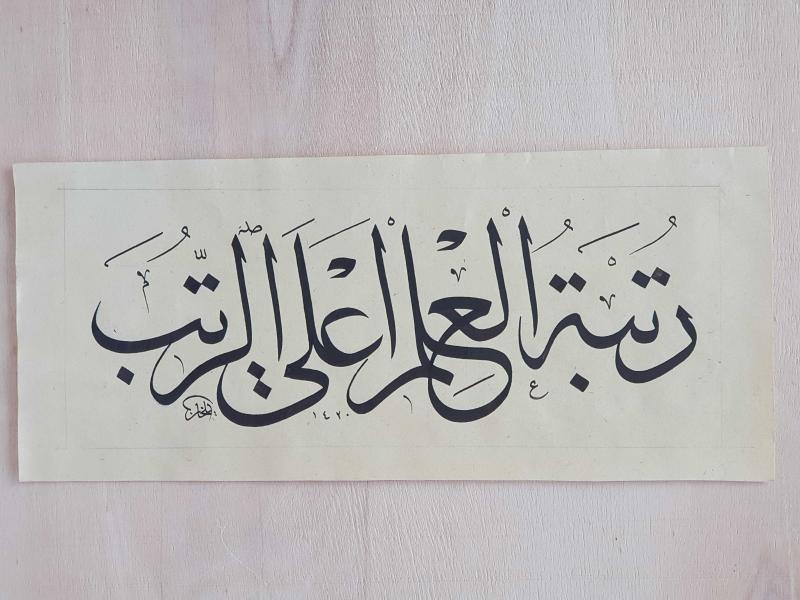 رُتْبَةُ الْعِلْمِ أَعْلَى الرُّتَبِ
١٤٢٠